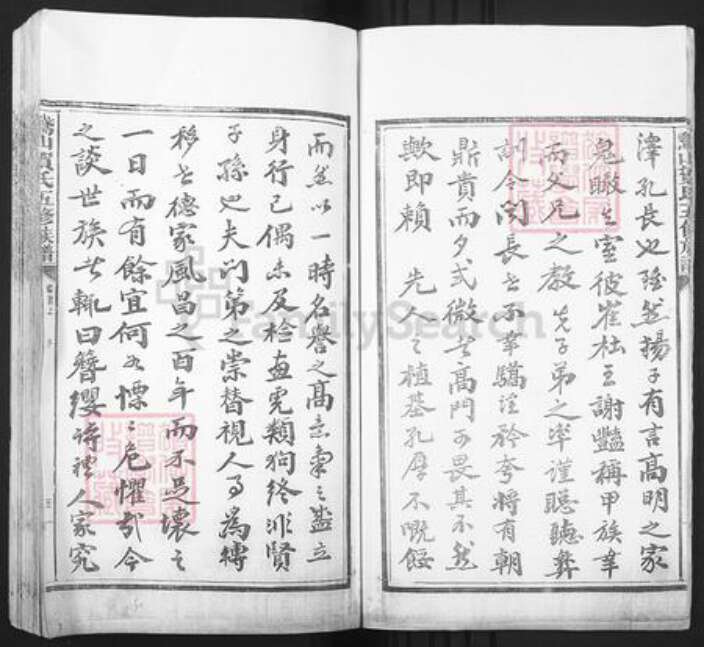 澤孔長也雖然揚子有言高明之家
鬼瞰其室彼崔杜王謝豔稱甲族幸
而父兄之教先子弟之率謹聰聽彝
訓令聞長世不幸驕淫矜夸將有朝
鼎貴而夕式微者高門可畏其不然
歟即賴 先人之植基孔厚不嘅餒
而然以一時名譽之高意氣之盛立
身行己偶未及檢畫虎類狗終非賢
子孫也夫門第之崇替視人為轉
移世德家風昌之百年而不足壞之
一日而有餘宜何如慄慄危懼哉今
之談世族者輒曰簪纓詩禮人家究
氏五修族譜
FamilySearch